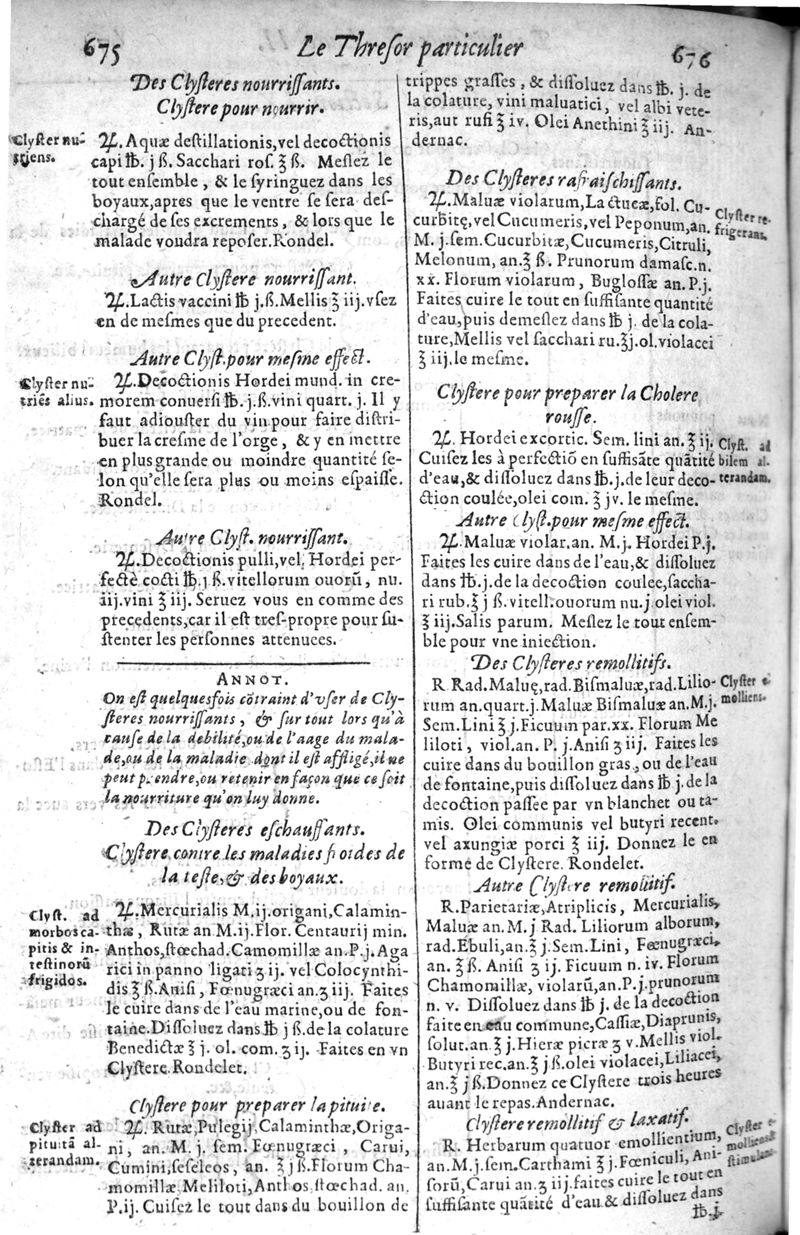 675 Le Thresor particulier 676
Des Clysteres nourrissants.
Clystere pour nourrir.
Clyster nu-
triens.
♃. Aquæ destillationis, vel decoctionis
capi ℔. j ß. Sacchari ros. ℥ ß. Meslez le
tout ensemble, & le syringuez dans les
boyaux, apres que le ventre se sera des-
chargé de ses excrements, & lors que le
malade voudra reposer. Rondel.
Autre Clystere nourrissant.
♃. Lactis vaccini ℔ j. ß. Mellis ℥ iij. vsez
en de mesmes que du precedent.
Autre Clyst. pour mesme effect.
Clyster nu-
triēs alius.
♃. Decoctionis Hordei mund. in cre-
morem conuersi ℔. j. ß. vini quart. j. Il y
faut adiouster du vin pour faire distri-
buer la cresme de l'orge, & y en mettre
en plus grande ou moindre quantité se-
lon qu'elle sera plus ou moins espaisse.
Rondel.
Autre Clyst. nourrissant.
♃. Decoctionis pulli, vel. Hordei per-
fectè cocti ℔. j ß. vitellorum ouorū, nu.
iij. vini ℥ iij. Seruez vous en comme des
precedents, car il est tres-propre pour su-
stenter les personnes attenuees.
ANNOT.
On est quelquesfois cōtraint d'vser de Cly-
steres nourrissants, & sur tout lors qu'à
cause de la debilité, ou de l'aage du mala-
de, ou de la maladie dont il est affligé, il ne
peut prendre, ou retenir en façon que ce soit
la nourriture qu'on luy donne.
Des Clysteres eschauffants.
Clystere contre les maladies froides de
la teste, & des boyaux.
Clyst. ad
morbos ca-
pitis & in-
testinorū
frigidos.
♃. Mercurialis M. ij. origani, Calamin-
thæ, Rutæ an. M. ij. Flor. Centaurij min.
Anthos, stœchad. Camomillæ an. P. j. Aga
rici in panno ligati ʒ ij. vel Colocynthi-
dis ℥ ß. Anisi, Fœnugræci an. ʒ iij. Faites
le cuire dans de l'eau marine, ou de fon-
taine. Dissoluez dans ℔ j ß. de la colature
Benedictæ ℥ j. ol. com. ʒ ij. Faites en vn
Clystere. Rondelet.
Clystere pour preparer la pituite.
Clyster ad
pituitā al-
terandam.
♃. Rutæ, Pulegij, Calaminthæ, Origa-
ni, an. M. j. sem. Fœnugræci, Carui,
Cumini, seseleos, an. ℥ j ß. Florum Cha-
momillæ, Meliloti, Anthos, stœchad. an.
P. ij. Cuisez le tout dans du bouillon de
trippes grasses, & dissoluez dans ℔. j. de
la colature, vini maluatici, vel albi vete-
ris, aut rufi ℥ iv. Olei Anethini ℥ iij. An-
dernac.
Des Clysteres rafraischissants.
Clyster re-
frigerans.
♃. Maluæ violarum, Lactucæ, fol. Cu-
curbitę, vel Cucumeris, vel Peponum, an.
M. j. sem. Cucurbitæ, Cucumeris, Citruli,
Melonum, an. ℥ ß. Prunorum damasc. n.
xx. Florum violarum, Buglossæ an. P. j.
Faites cuire le tout en suffisante quantité
d'eau, puis demeslez dans ℔ j. de la cola-
ture, Mellis vel sacchari ru. ℥ j. ol. violacei
℥ iij. le mesme.
Clystere pour preparer la Cholere
rousse.
Clyst. ad
bilem al-
terandam.
♃. Hordei excortic. Sem. lini an. ℥ ij.
Cuisez les à perfectiō en suffisāte quātité
d'eau, & dissoluez dans ℔. j. de leur deco-
ction coulée, olei com. ℥ jv. le mesme.
Autre clyst. pour mesme effect.
♃. Maluæ violar. an. M. j. Hordei P. j.
Faites les cuire dans de l'eau, & dissoluez
dans ℔. j. de la decoction coulee, saccha-
ri rub. ℥ j ß. vitell. ouorum nu. j. olei viol.
℥ iij. Salis parum. Meslez le tout ensem-
ble pour vne iniection.
Des Clysteres remollitifs.
Clyster e-
molliens.
R Rad. Maluę, rad. Bismaluæ, rad. Lilio-
rum an. quart. j. Maluæ Bismaluæ an. M. j.
Sem. Lini ℥ j. Ficuum par. xx. Florum Me
liloti, viol. an. P. j. Anisi ʒ iij. Faites les
cuire dans du bouillon gras, ou de l'eau
de fontaine, puis dissoluez dans ℔ j. de la
decoction passée par vn blanchet ou ta-
mis. Olei communis vel butyri recent.
vel axungiæ porci ℥ iij. Donnez le en
forme de Clystere. Rondelet.
Autre Clystere remollitif.
R. Parietariæ, Atriplicis, Mercurialis,
Maluæ an. M. j Rad. Liliorum alborum,
rad. Ebuli, an. ℥ j. Sem. Lini, Fœnugræci,
an. ℥ ß. Anisi ʒ ij. Ficuum n. iv. Florum
Chamomillæ, violarū, an. P. j. prunorum
n. v. Dissoluez dans ℔ j. de la decoction
faite en eau commune, Cassiæ, Diaprunis,
solut. an. ℥ j. Hieræ picræ ʒ v. Mellis viol.
Butyri rec. an. ℥ j ß. olei violacei, Liliacei,
an. ℥ j ß. Donnez ce Clystere trois heures
auant le repas. Andernac.
Clystere remollitif & laxatif.
Clyster e-
molliens &
R. Herbarum quatuor emollientium,
an. M. j. sem. Carthami ℥ j. Fœniculi, Ani-
sorū, Carui an. ʒ iij. faites cuire le tout en
suffisante quātité d'eau & dissoluez dans
℔. j.